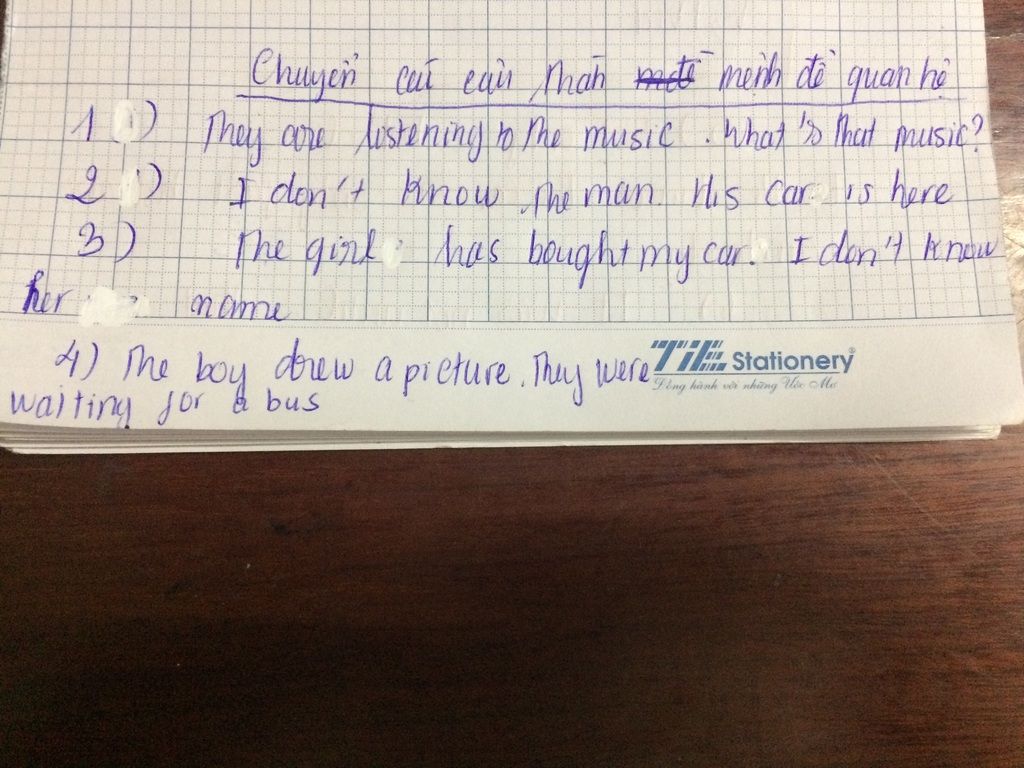 Chuyển cái câu thàh mệnh đề quan hệ
1) They are listening to the music. What's that music?
2) I don't know the man. His car is here
3) The girl has bought my car. I don't know
her name
4) The boy drew a picture. They were
waiting for a bus
TiE Stationery
Đồng hành với những Ước Mơ